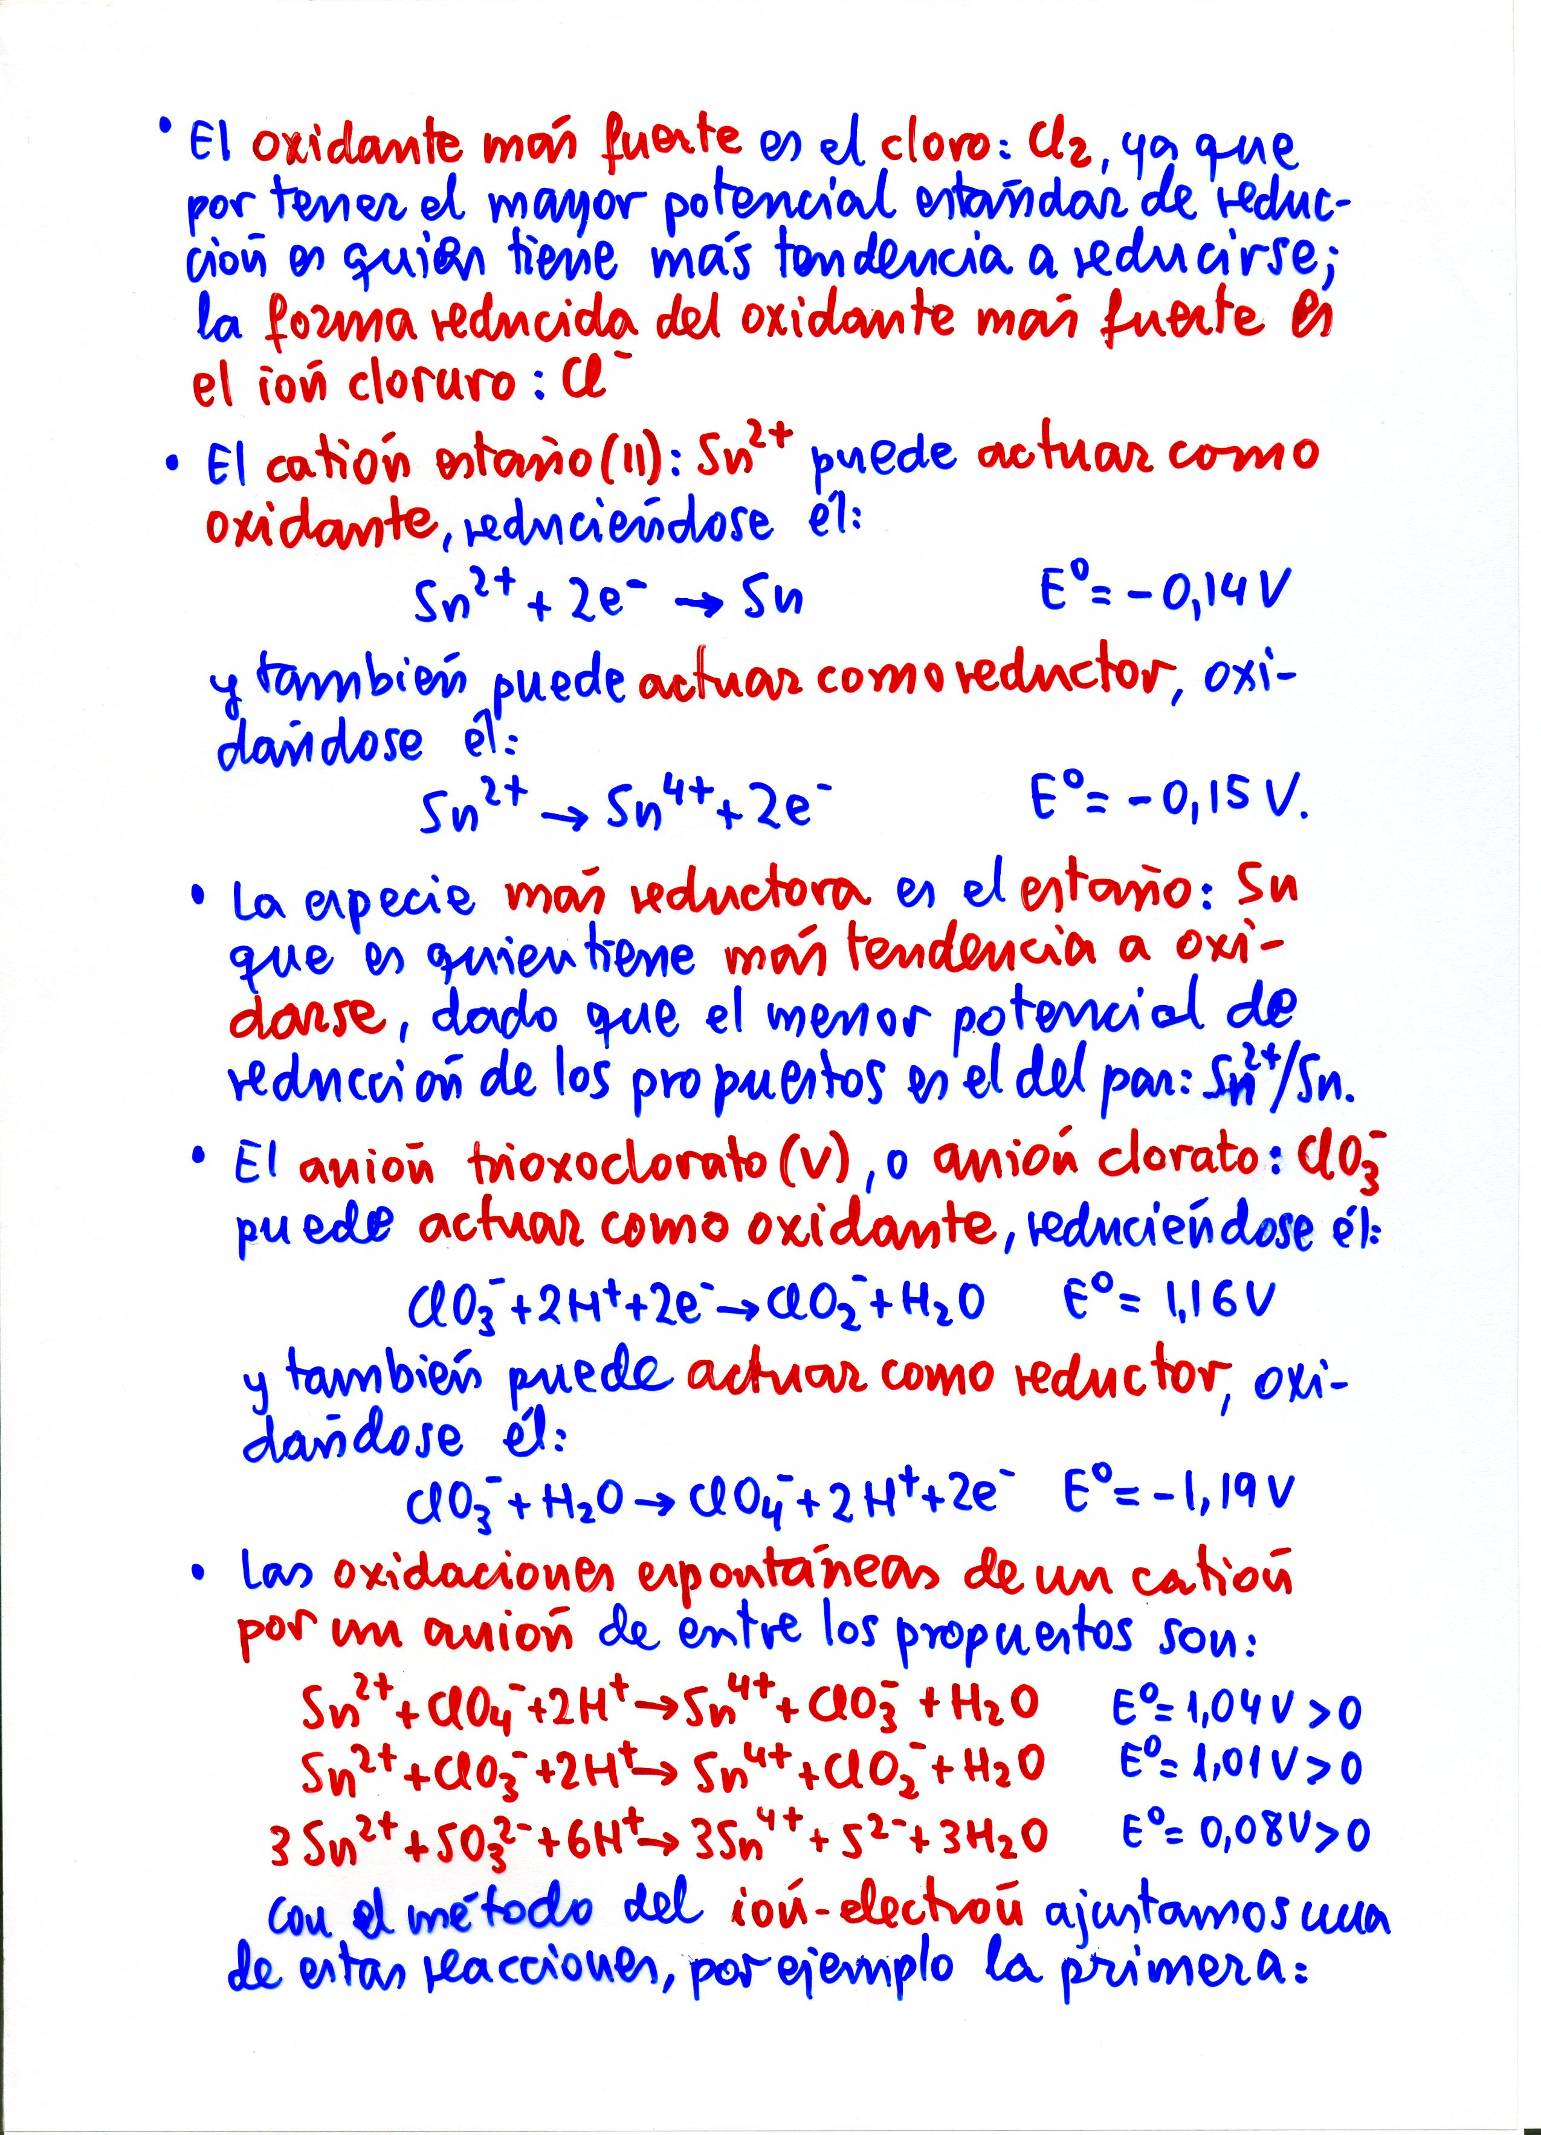 • El oxidante más fuerte es el cloro: Cl₂, ya que
por tener el mayor potencial estándar de reduc-
ción es quién tiene más tendencia a reducirse;
la forma reducida del oxidante más fuerte es
el ión cloruro: Cl⁻
• El catión estaño(II): Sn²⁺ puede actuar como
oxidante, reduciéndose él:
Sn²⁺ + 2e⁻ → Sn E⁰ = -0,14 V
y también puede actuar como reductor, oxi-
dándose él:
Sn²⁺ → Sn⁴⁺ + 2e⁻ E⁰ = -0,15 V.
• La especie más reductora es el estaño: Sn
que es quien tiene más tendencia a oxi-
darse, dado que el menor potencial de
reducción de los propuestos es el del par: Sn²⁺/Sn.
• El anión trioxoclorato(V), o anión clorato: ClO₃⁻
puede actuar como oxidante, reduciéndose él:
ClO₃⁻ + 2H⁺ + 2e⁻ → ClO₂⁻ + H₂O E⁰ = 1,16 V
y también puede actuar como reductor, oxi-
dándose él:
ClO₃⁻ + H₂O → ClO₄⁻ + 2H⁺ + 2e⁻ E⁰ = -1,19 V
• Las oxidaciones espontáneas de un catión
por un anión de entre los propuestos son:
Sn²⁺ + ClO₄⁻ + 2H⁺ → Sn⁴⁺ + ClO₃⁻ + H₂O E⁰ = 1,04 V > 0
Sn²⁺ + ClO₃⁻ + 2H⁺ → Sn⁴⁺ + ClO₂⁻ + H₂O E⁰ = 1,01 V > 0
3 Sn²⁺ + SO₃²⁻ + 6H⁺ → 3Sn⁴⁺ + S²⁻ + 3H₂O E⁰ = 0,08 V > 0
Con el método del ión-electrón ajustamos una
de estas reacciones, por ejemplo la primera: